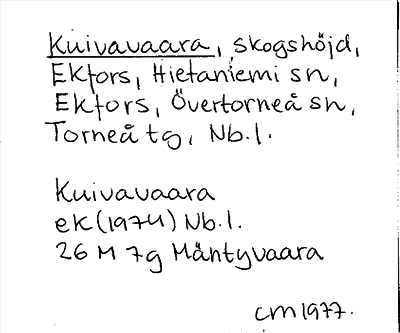 Kuivavaara, skogshöjd,
Ekfors, Hietaniemi sn,
Ekfors, Övertorneå sn,
Torneå tg, Nb.l.
Kuivavaara
ek (1974) Nb.l.
26 M 7g Mäntyvaara
cm 1977.